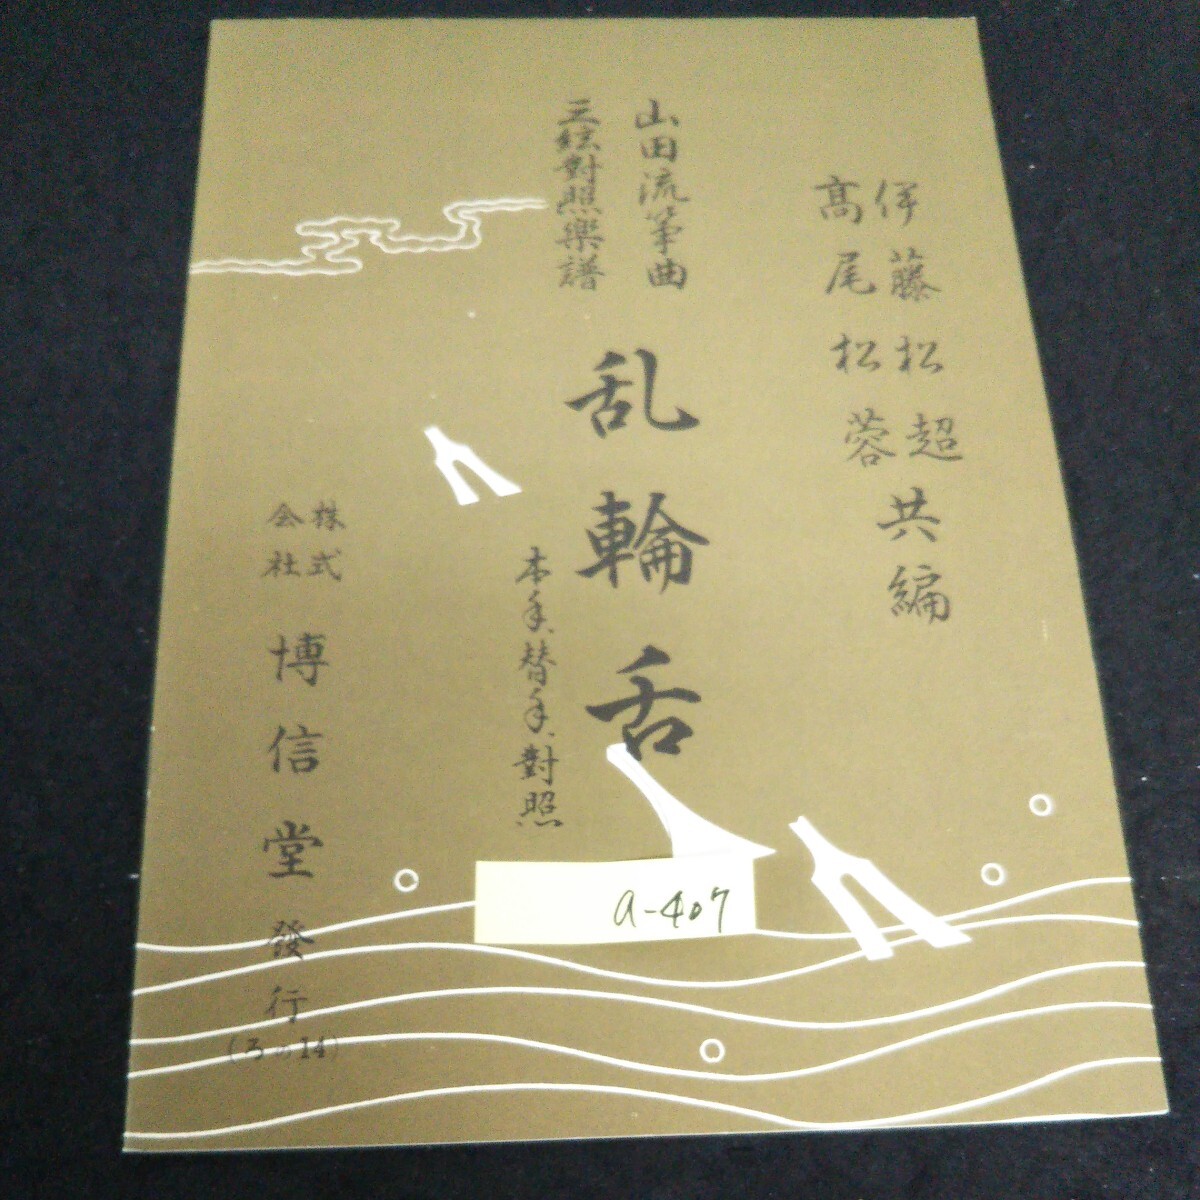 伊藤松超
高尾松蓉
共編
山田流箏曲
三絃對照樂譜
乱輪舌
本手、替手、對照
株式
会社
博信堂發行
(ろの14)
a-407